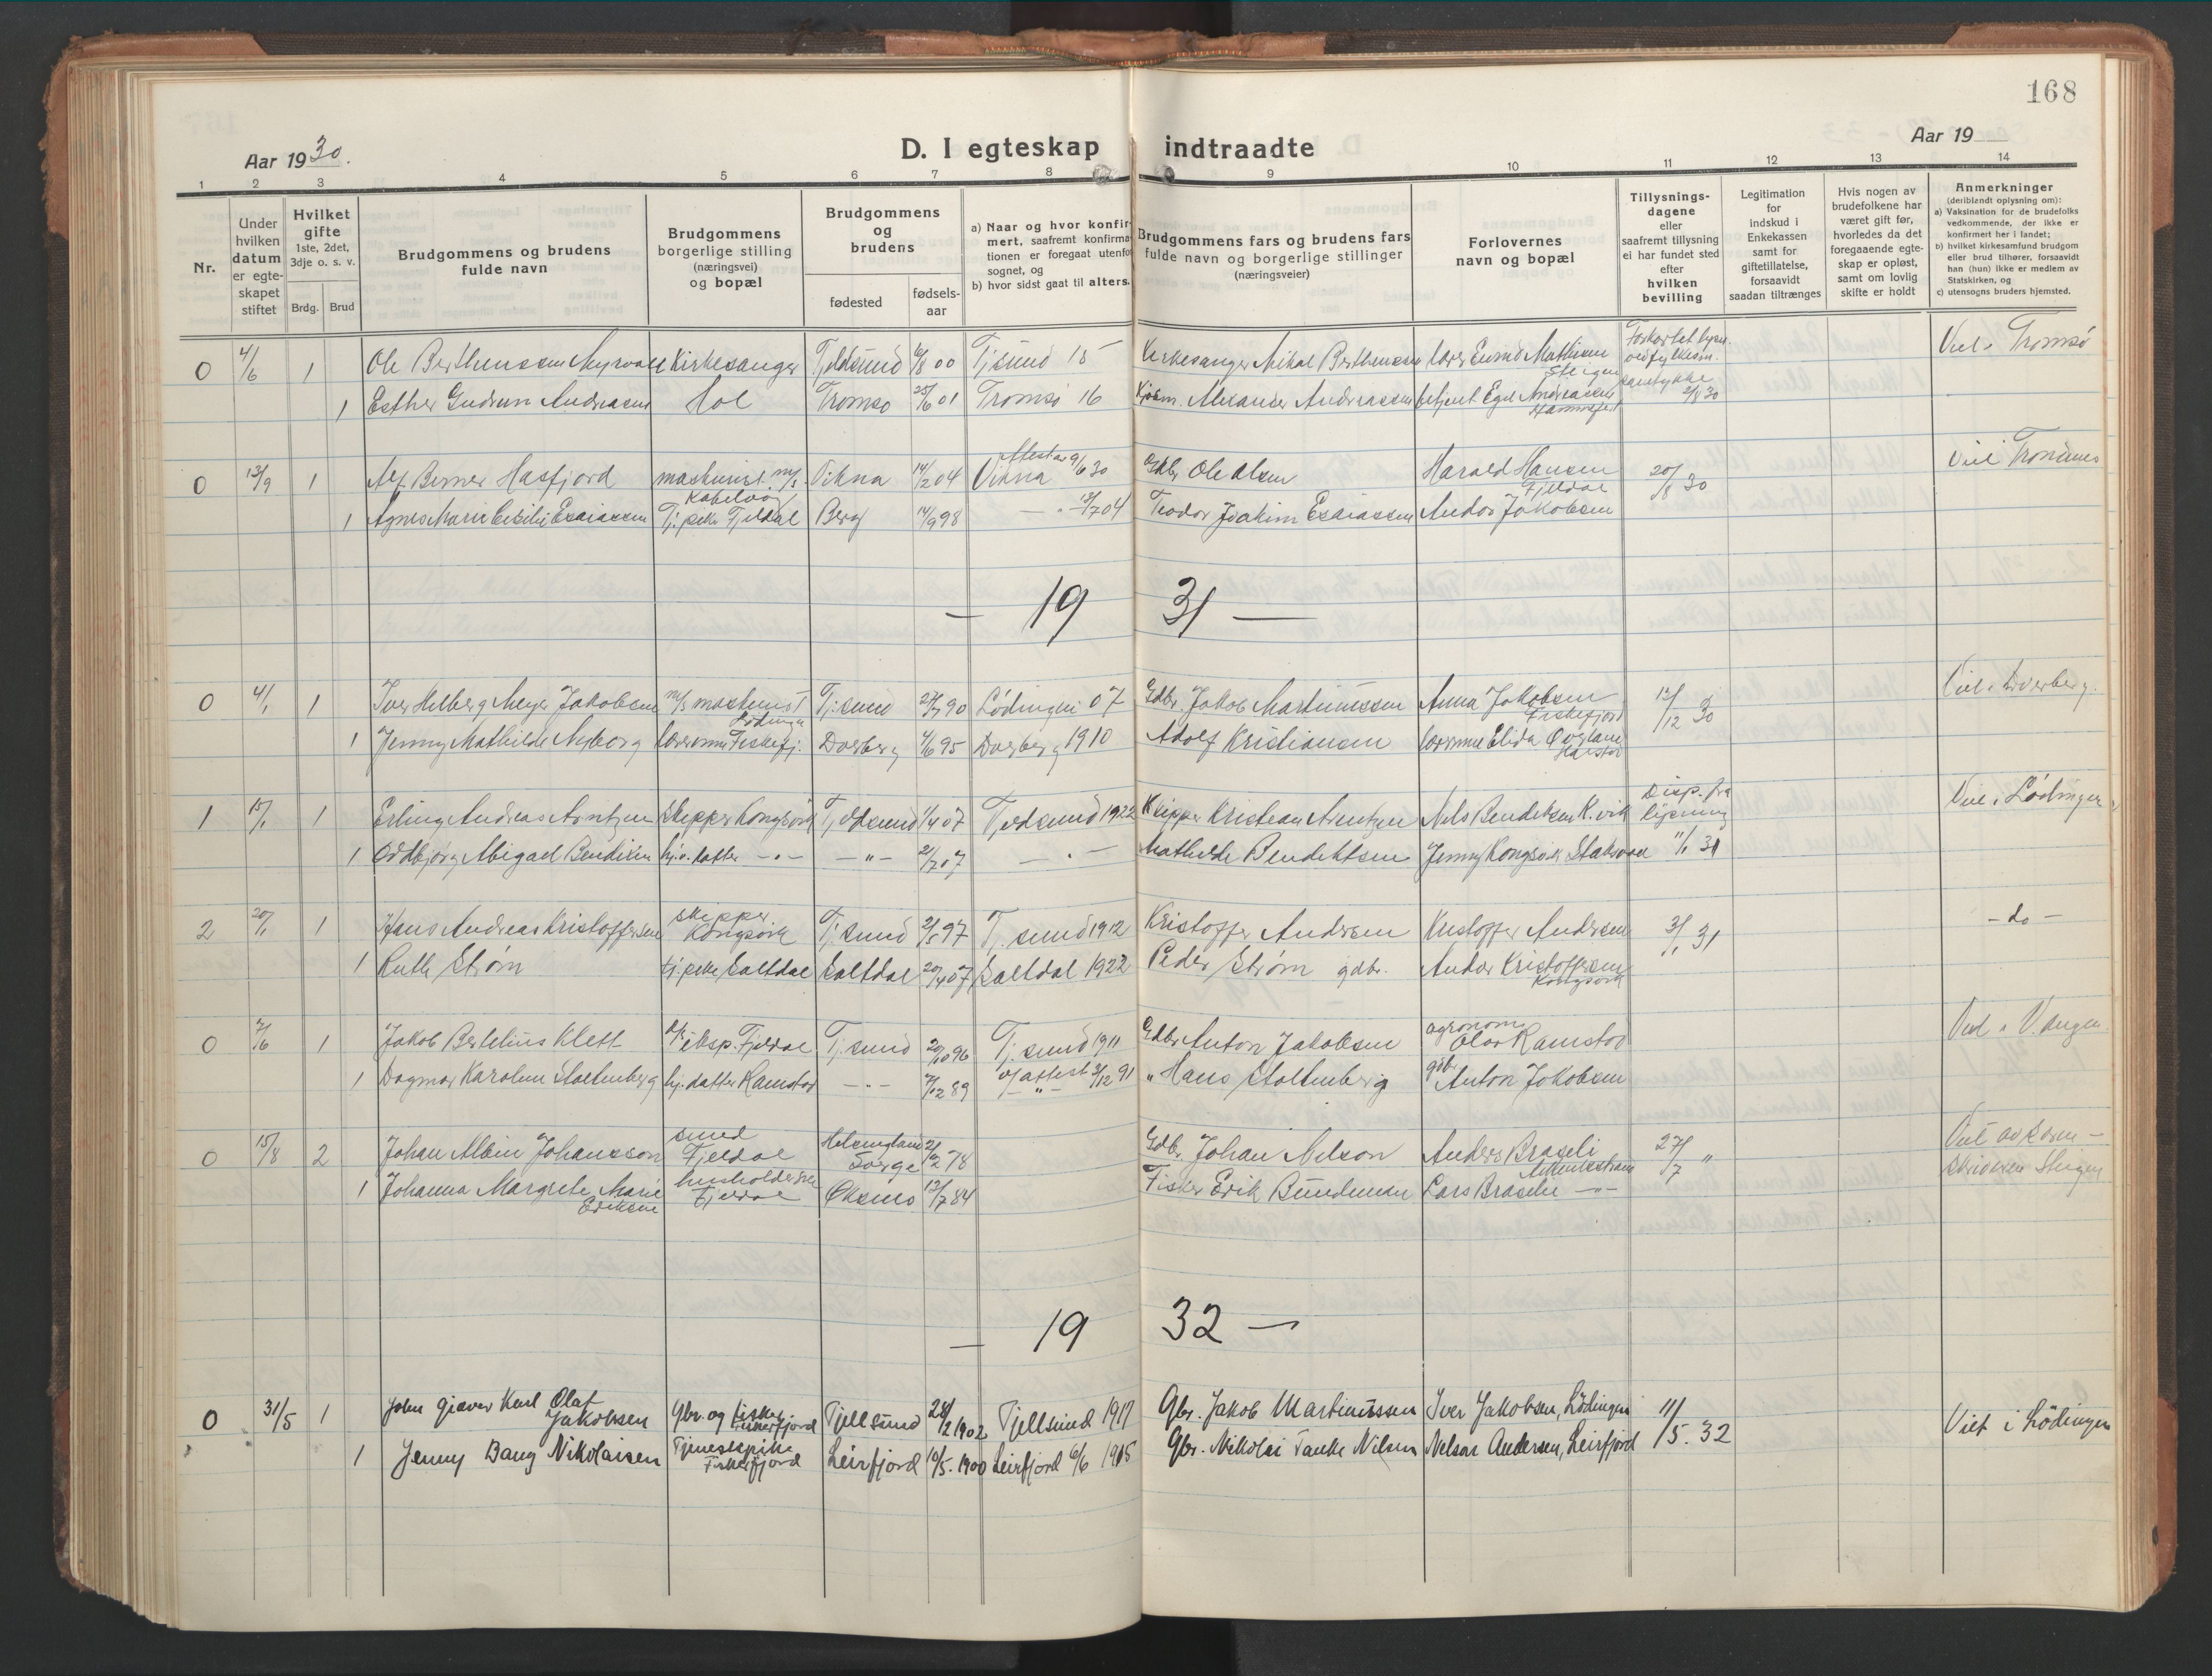 168
Aar 1930.
D. I egteskap indtraadte
Aar 19
1 2 3 4 5 6 7 8 9 10 11 12 13 14
Nr.
Under hvilken datum er egteskapet stiftet
Hvilket gifte 1ste, 2det, 3dje o. s. v.
Brdg. Brud
Brudgommens og brudens fulde navn
Brudgommens borgerlige stilling (næringsvei) og bopæl
Brudgommens og brudens
fødested
fødsels-aar
a) Naar og hvor konfirmert, saafremt konfirmationen er foregaat utenfor sognet, og
b) hvor sidst gaat til alters.
Brudgommens fars og brudens fars fulde navn og borgerlige stillinger (næringsveier)
Forlovernes navn og bopæl
Tillysnings-dagene eller saafremt tillysning ei har fundet sted efter hvilken bevilling
Legitimation for indskud i Enkekassen samt for giftetillatelse, forsaavidt saadan tiltrænges
Hvis nogen av brudefolkene har været gift før, hvorledes da det foregaaende egteskap er opløst, samt om lovlig skifte er holdt
Anmerkninger (deriblandt oplysning om):
a) Vaksination for de brudefolks vedkommende, der ikke er konfirmert her i landet;
b) hvilket kirkesamfund brudgom eller brud tilhører, forsaavidt han (hun) ikke er medlem av Statskirken, og
c) utensogns bruders hjemsted.
0 4/6 1 Ole Berthenssen Myrvall Kirkesanger Tjeldsund 6/8 00 Tj.sund 15 Kirkesanger Mikal Berthenssen Mathisen Steigen
1 Esther Gudrun Andreassen Hol Tromsø 25/6 01 Tromsø 16 Kjøbm. Alexander Andreassen betjent Egil Andreassen Hammerfest 2/5 30 Viet i Tromsø
0 13/9 1 Alf Berner Hasfjord maskinist Kabelvåg Vikna 14/2 04 Vikna Attest av 9/6 30 Gdbr. Ole Olsen Harald Hansen Fjeldal 20/8 30
1 Agnes Marie Cecilie Esaiassen Tj.pike Fjeldal Berg 14/9 98 Teodor Joakim Esaiassen Andor Jakobsen
— 19 31 —
0 4/1 1 Iver Helberg Meyer Jakobsen m/s maskinist Lødingen Tj.sund 27/7 90 Lødingen 07 Gdbr. Jakob Martinussen Anna Jakobsen Fiskefjord 12/12 30 Viet i Dverberg.
1 Jenny Mathilde Nyborg lærerinne Fiskefj. Dverberg 4/6 95 Dverberg 1910 Adolf Kristiansen lærerinne Elida
1 15/1 1 Erling Andreas Arntzen Skipper Kongsvik Tjeldsund 1/4 07 Tjeldsund 1922 Skipper Kristian Arntzen Nils Bendiksen K.vik Disp. fra lysning 11/1 31 Viet i Lødingen
1 Oddbjørg Abigael Bendiksen hj.v. datter — " — — " — 21/7 07 — " — Mathilde Bendiktsen Jenny Kongsvik
2 20/1 1 Hans Andreas Kristoffersen skipper. Kongsvik Tj.sund 2/5 97 Tj.sund 1912 Kristoffer Andersen Kristoffer Andersen 3/1 31 — do —
1 Ruth Strøm tj.pike Saltdal Saltdal 20/4 07 Saltdal 1922 Peder Strøm gdbr. Andor Kristoffersen Kongsvik
0 7/6 1 Jakob Bertelius Klett eksp. Fjeldal Tj.sund 20/10 96 Tj.sund 1911 Gdbr. Anton Jakobsen agronom Olav Ramstad
1 Dagmar Karoline Stoltenberg hj. datter Ramstad — " — 7/12 89 " Hans Stoltenberg gdbr. Anton Jakobsen
0 15/8 2 Johan Albin Johansson smed Fjeldal 21/2 78 Gdbr. Johan Nelson Anders Braseli 27/7 " Viet av Soren-
1 Johanna Margrete Marie Eriksen husholderske Fjeldal Øksnes 13/7 84 Fisker Erik Bundesen Lars Braseli — " — skriveren Steigen
— 19 32 —
0 31/5 1 John Giæver Karl Olaf Jakobsen Gbr. og fisker Fiskefjord Tjellsund 28/2 1902 Tjellsund 1917 Gbr. Jakob Martinussen Iver Jakobsen, Lödingen 11/5. 32 Viet i Lödingen
1 Jenny Baug Nikolaisen Tjenestepike Fiskefjord Leirfjord 10/5. 1900 Leirfjord 6/6 1915 Gbr. Nikolai Tanke Nilsen Nelsar Andersen, Leirfjord